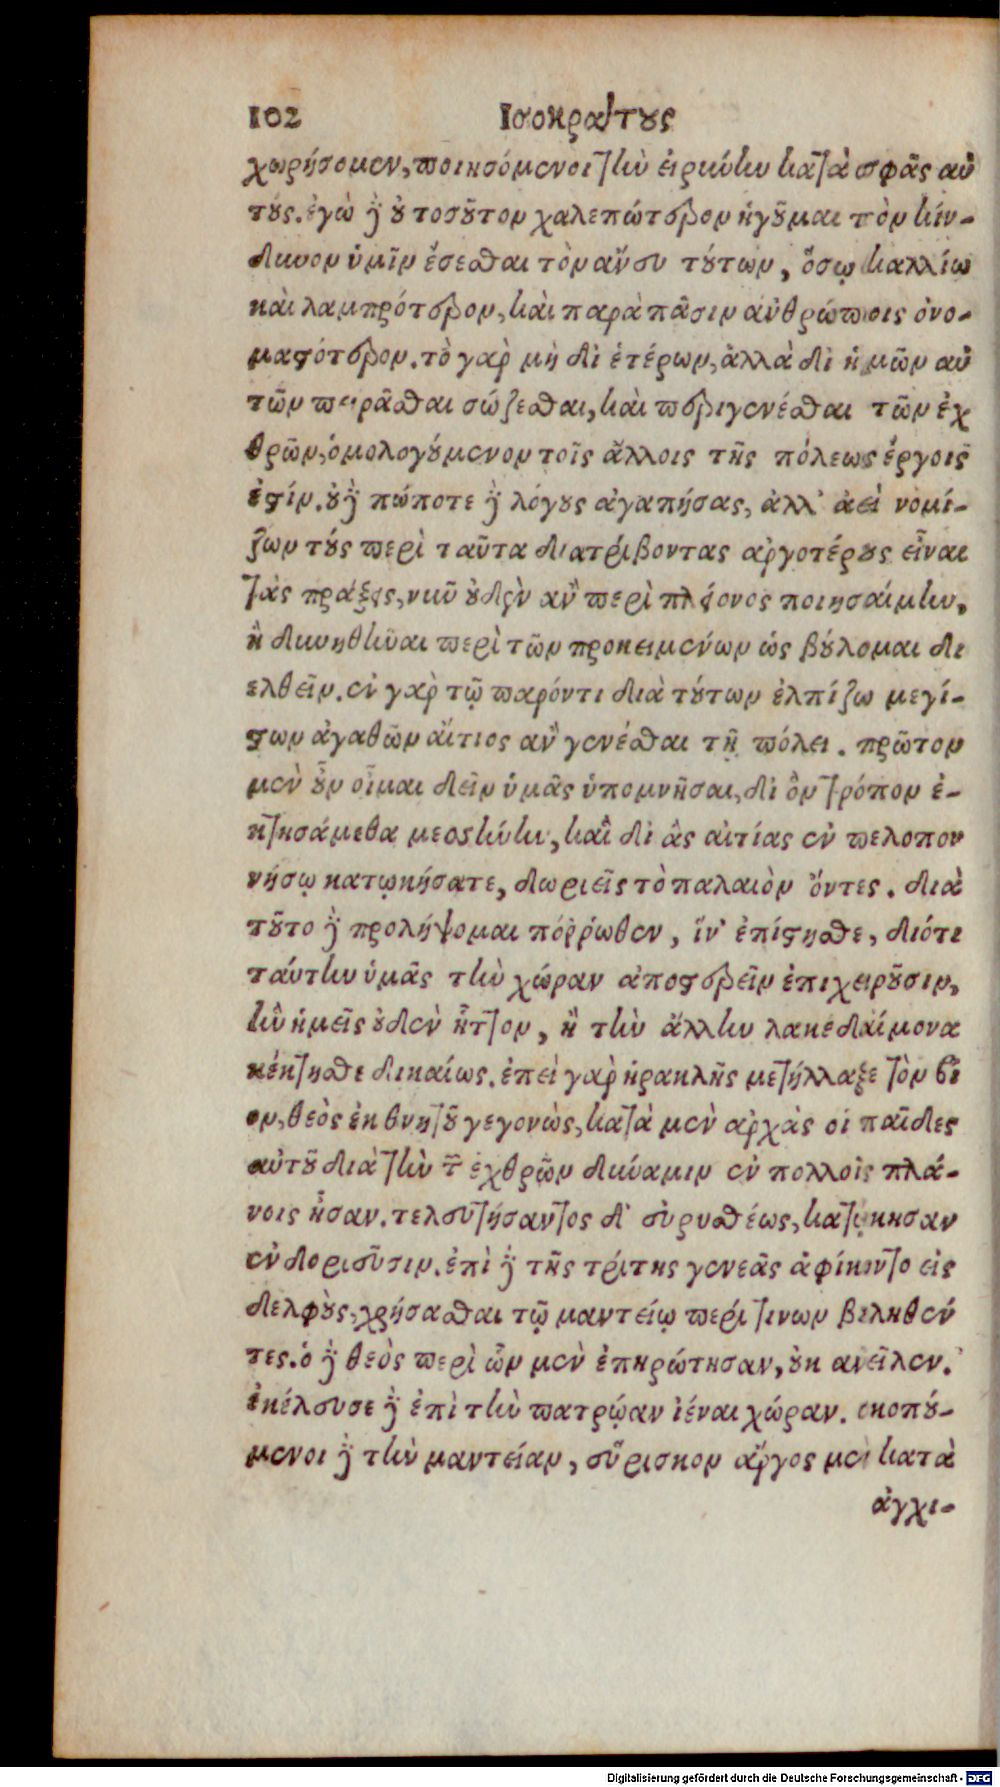 102 Ἰσοκράτους
χωρήσομεν, ποιησόμενοι τὴν εἰρήνην κατὰ σφᾶς αὐ
τούς. ἐγὼ δὲ οὐ τοσοῦτον χαλεπώτερον ἡγοῦμαι τὸν κίν-
δυνον ὑμῖν ἔσεσθαι τὸν ἄνευ τούτων, ὅσῳ καλλίω
καὶ λαμπρότερον, καὶ παρὰ πᾶσιν ἀνθρώποις ὀνο-
μαστότερον. τὸ γὰρ μὴ δι ἑτέρων, ἀλλὰ δι ἡμῶν αὐ
τῶν πειρᾶσθαι σώζεσθαι, καὶ περιγενέσθαι τῶν ἐχ
θρῶν, ὁμολογούμενον τοῖς ἄλλοις τῆς πόλεως ἔργοις
ἐστίν. οὐδὲ πώποτε δὲ λόγους ἀγαπήσας, ἀλλ' ἀεὶ νομί-
ζων τοὺς περὶ ταῦτα διατρίβοντας ἀργοτέρους εἶναι
τὰς πράξεις, νῦν οὐδὲν ἂν περὶ πλείονος ποιησαίμην,
ἢ δυνηθῆναι περὶ τῶν προκειμένων ὡς βούλομαι δι
ελθεῖν. ἐν γὰρ τῷ παρόντι διὰ τούτων ἐλπίζω μεγί-
στων ἀγαθῶν αἴτιος ἂν γενέσθαι τῇ πόλει. πρῶτον
μὲν οὖν οἶμαι δεῖν ὑμᾶς ὑπομνῆσαι, δι ὃν τρόπον ἐ-
κτησάμεθα μεσσήνην, καὶ δι ἃς αἰτίας ἐν πελοπον
νήσῳ κατῳκήσατε, δωριεῖς τὸ παλαιὸν ὄντες. διὰ
τοῦτο δὲ προλήψομαι πόῤῥωθεν, ἵν' ἐπίστησθε, διότι
ταύτην ὑμᾶς τὴν χώραν ἀποστερεῖν ἐπιχειροῦσιν,
ἣν ἡμεῖς οὐδὲν ἧττον, ἢ τὴν ἄλλην λακεδαίμονα
κέκτησθε δικαίως. ἐπεὶ γὰρ ἡρακλῆς μετήλλαξε τὸν βί
ον, θεὸς ἐκ θνητοῦ γεγονὼς, κατὰ μὲν ἀρχὰς οἱ παῖδες
αὐτοῦ διὰ τὴν τῶν ἐχθρῶν δύναμιν ἐν πολλοῖς πλά-
νοις ἦσαν. τελευτήσαντος δ' εὐρυσθέως, κατῴκησαν
ἐν δοριεῦσιν. ἐπὶ δὲ τῆς τρίτης γενεᾶς ἀφίκοντο εἰς
δελφοὺς, χρήσασθαι τῷ μαντείῳ περί τινων βουληθέν
τες. ὁ δὲ θεὸς περὶ ὧν μὲν ἐπηρώτησαν, οὐκ ἀνεῖλεν.
ἐκέλευσε δὲ ἐπὶ τὴν πατρῴαν ἰέναι χώραν. σκοπού-
μενοι δὲ τὴν μαντείαν, εὕρισκον ἄργος μὲν κατὰ
ἀγχι-
Digitalisierung gefördert durch die Deutsche Forschungsgemeinschaft - DFG